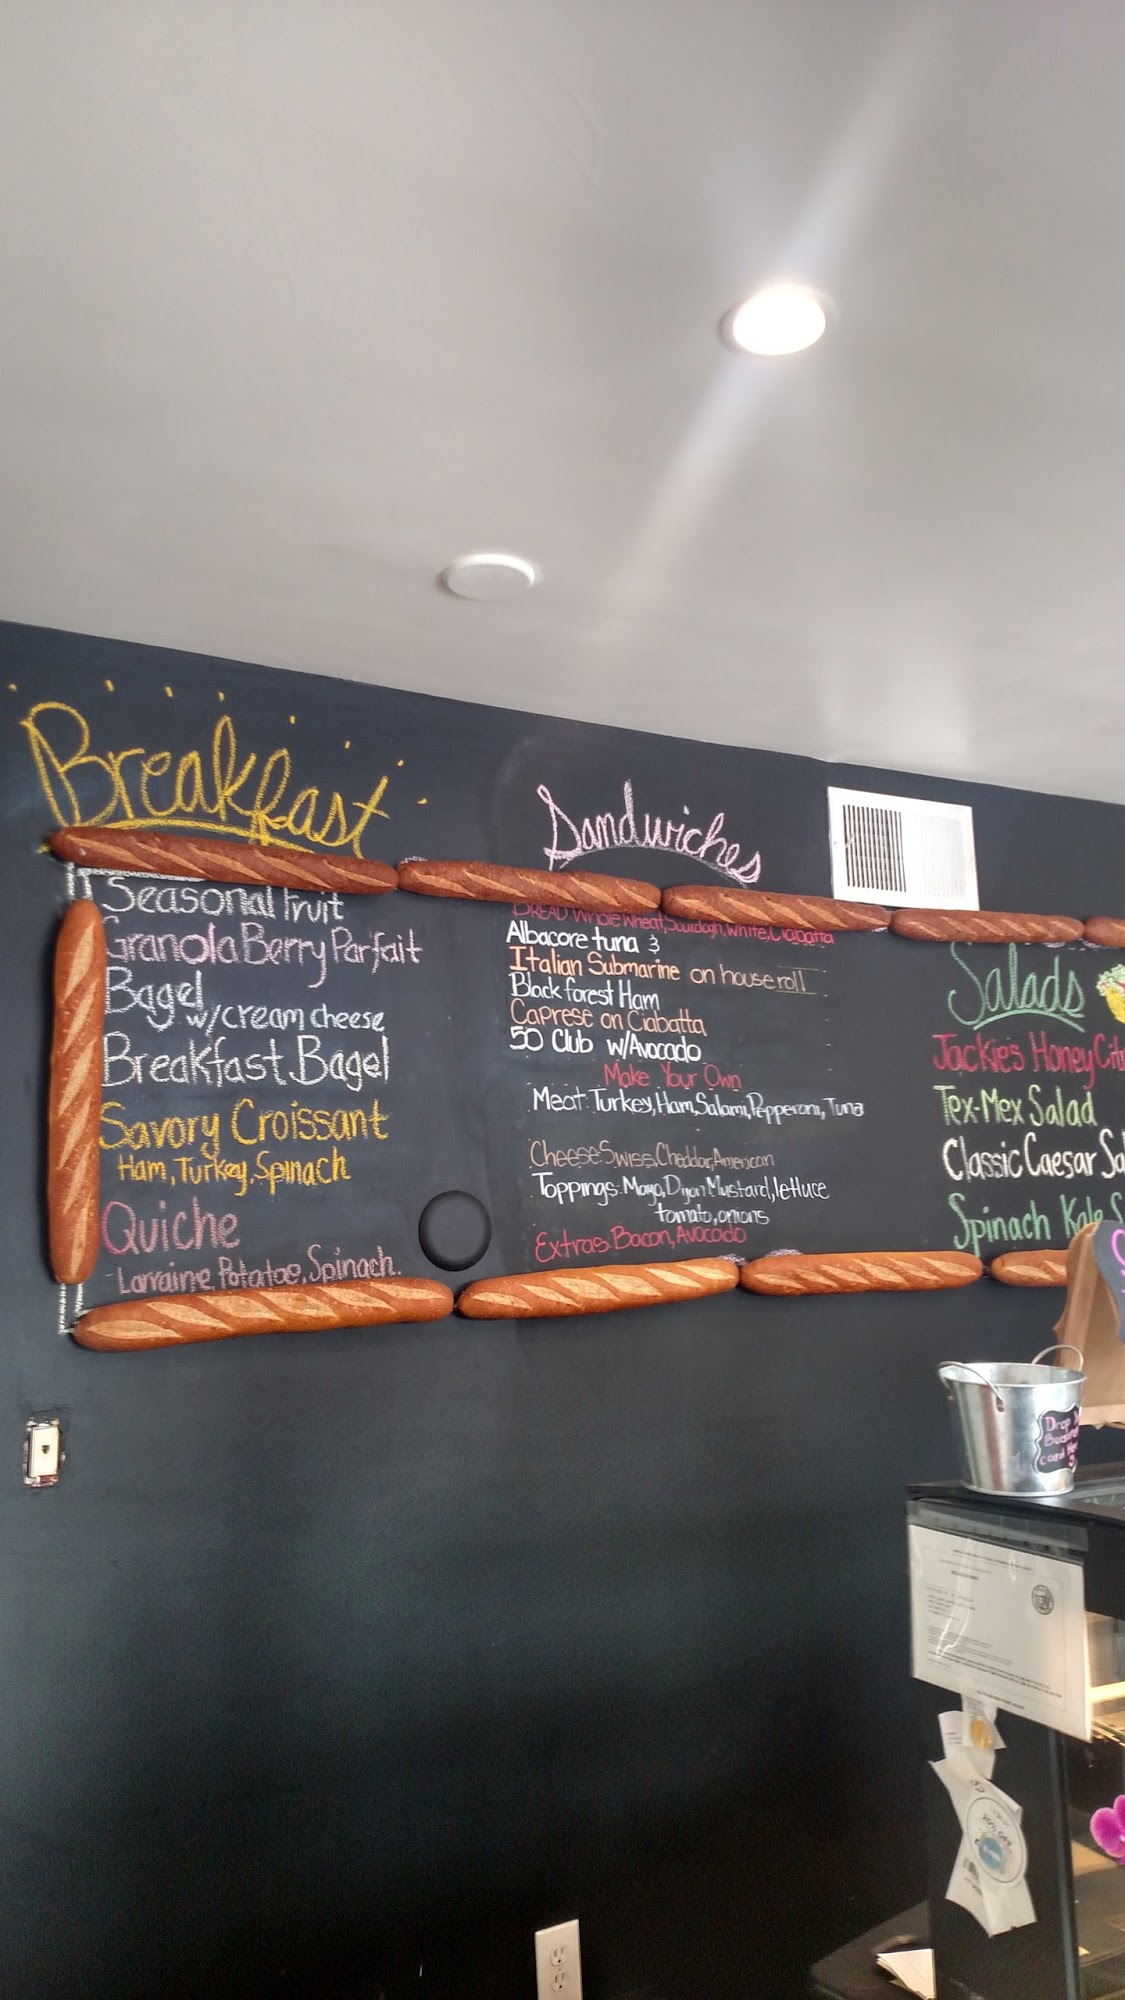 Breakfast
Seasonal Fruit
Granola Berry Parfait
Bagel
w/cream cheese
Breakfast Bagel
Savory Croissant
Ham, Turkey, Spinach
Quiche
Lorraine, Potatoe, Spinach.
Sandwiches
BREAD: Whole Wheat, Sourdogh, White, Ciabatta
Albacore tuna
Italian Submarine on house roll
Black forest Ham
Caprese on Ciabatta
50 Club w/Avocado
Make Your Own
Meat: Turkey, Ham, Salami, Pepperoni, Tuna
Cheese: Swiss, Cheddar, American
Toppings: Mayo, Dijon Mustard, lettuce
tomato, onions
Extras: Bacon, Avocado
Salads
Jackie's Honey
Tex-Mex Salad
Classic Caesar
Spinach Kale
Drop
card
20% OFF